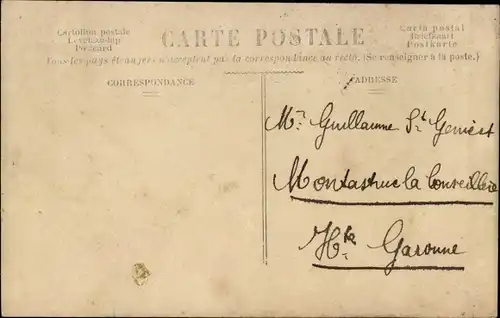 Cartolina postale
Levelező-lap
Postcard
CARTE POSTALE
Carta postal
Briefkaart
Postkarte
Tous les pays étrangers n'acceptent pas la correspondance au recto. (Se renseigner à la poste.)
CORRESPONDANCE
ADRESSE
Mr. Guillaume St Geniest
Montastruc la Conseillère
Hte Garonne